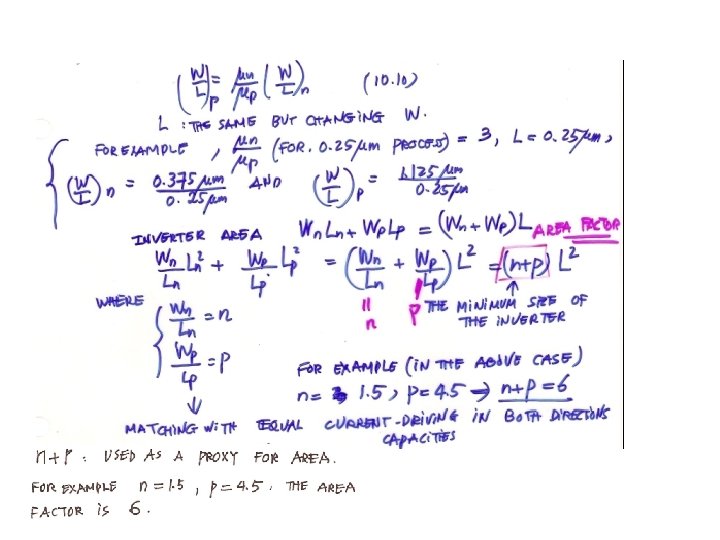 (W/L)p = μn/μp (W/L)n (10.10)
L : THE SAME BUT CHANGING W.
FOR EXAMPLE , μn/μp (FOR. 0.25μm PROCESS) = 3, L = 0.25μm,
(W/L)n = 0.375μm/0.25μm AND (W/L)p = 1.125μm/0.25μm
INVERTER AREA WnLn + WpLp = (Wn + Wp)L AREA FACTOR
Wn/Ln Ln² + Wp/Lp Lp² = (Wn/Ln + Wp/Lp) L² = (n+p) L²
WHERE " n P ↑ THE MINIMUM SIZE OF
THE INVERTER
{ Wn/Ln = n
Wp/Lp = P
FOR EXAMPLE (IN THE ABOVE CASE)
n = 1.5, P = 4.5 → n+P = 6
MATCHING WITH EQUAL CURRENT-DRIVING IN BOTH DIRECTIONS
CAPACITIES
n+P : USED AS A PROXY FOR AREA.
FOR EXAMPLE n = 1.5 , P = 4.5 , THE AREA
FACTOR is 6.